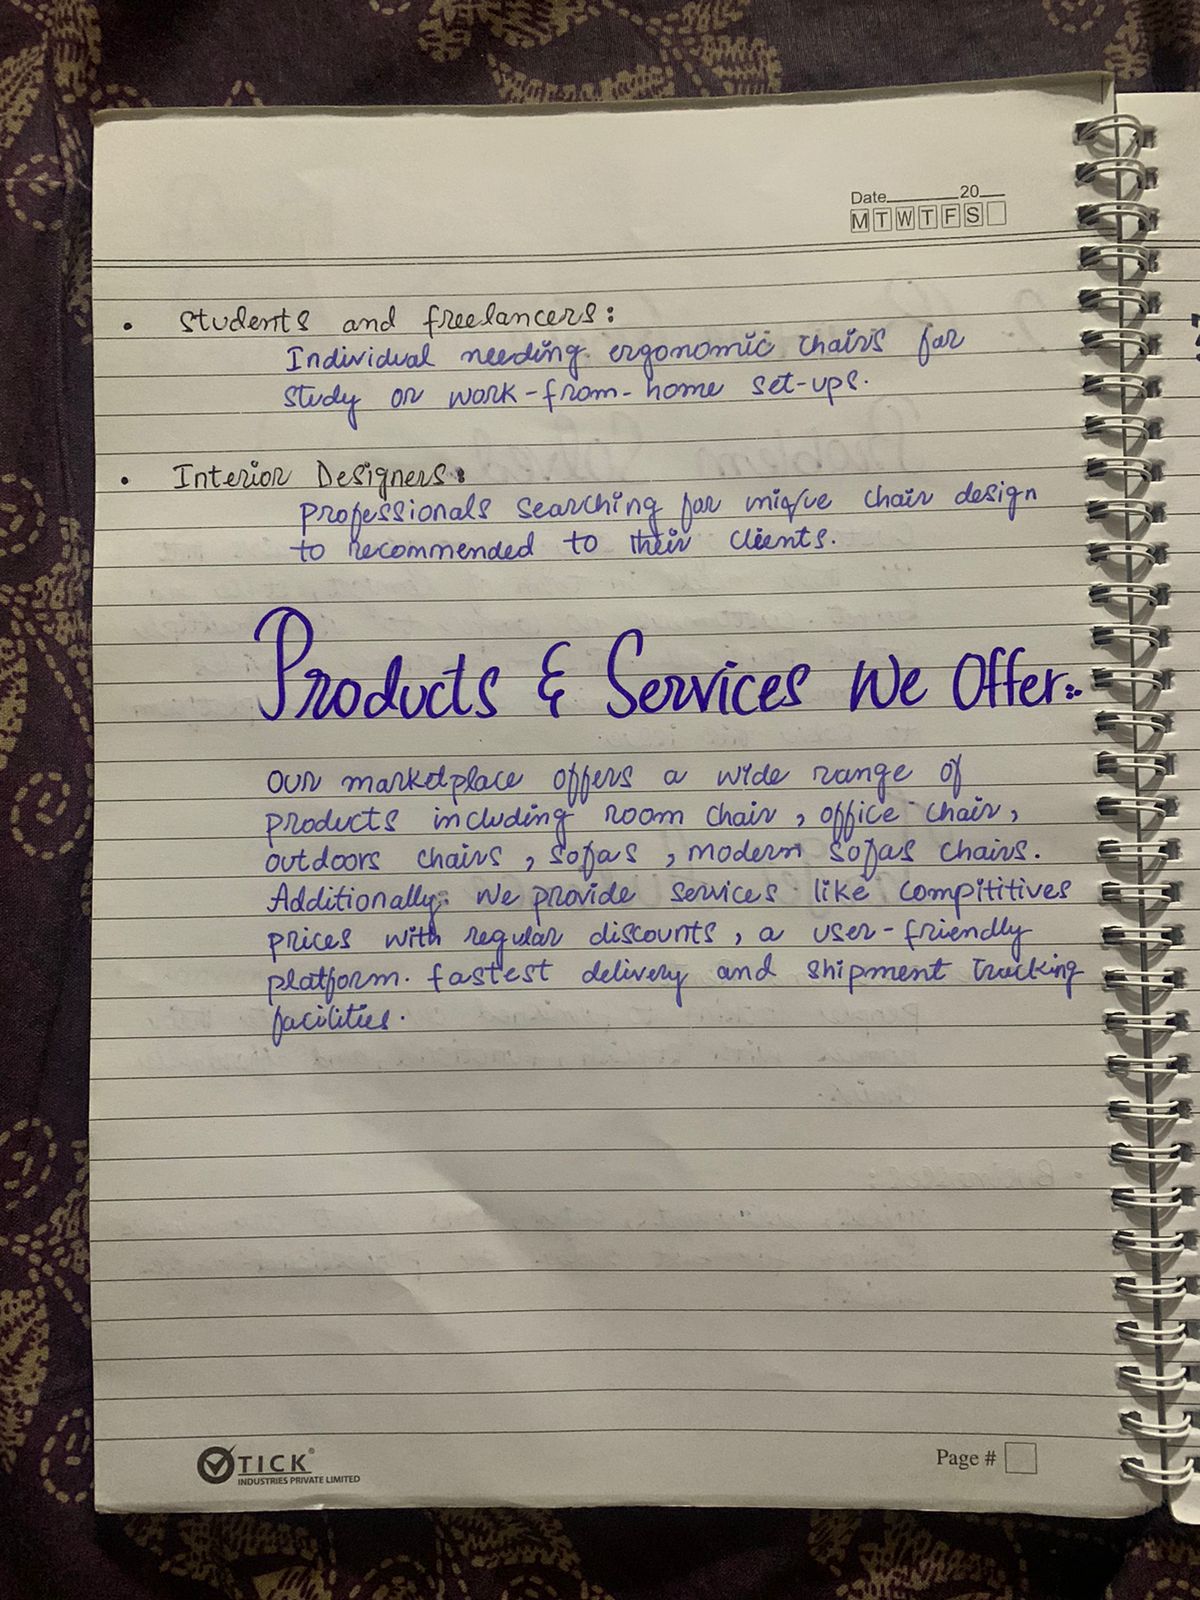 Date 20
M T W T F S
• Students and freelancers:
Individual needing ergonomic chairs for
study or work-from-home set-ups.
• Interior Designers:
professionals searching for chair design
to recommended to their clients.
Products & Services We Offer:-
Our marketplace offers a wide range of
products including room chair, office chair,
outdoors chairs, sofas, modern sofas chairs.
Additionally. We provide services like compititives
prices with regular discounts, a user-friendly
platform. fastest delivery and shipment tracking
facilities.
TICK®
INDUSTRIES PRIVATE LIMITED
Page #